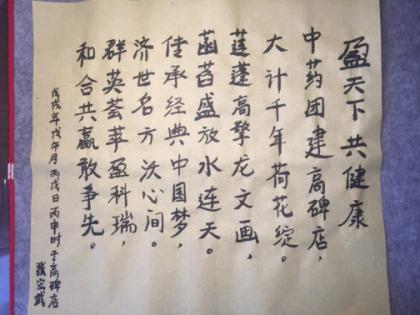 盈天下共健康
中药团建高碑店，
大计千年荷花绽。
莲蓬高擎龙文画，
菡萏盛放水连天。
传承经典中国梦，
济世名方沃心间。
群英荟萃盈科瑞，
和合共赢敢争先。
戊戌年戊午月丙戌日丙申时于高碑店
张宏武